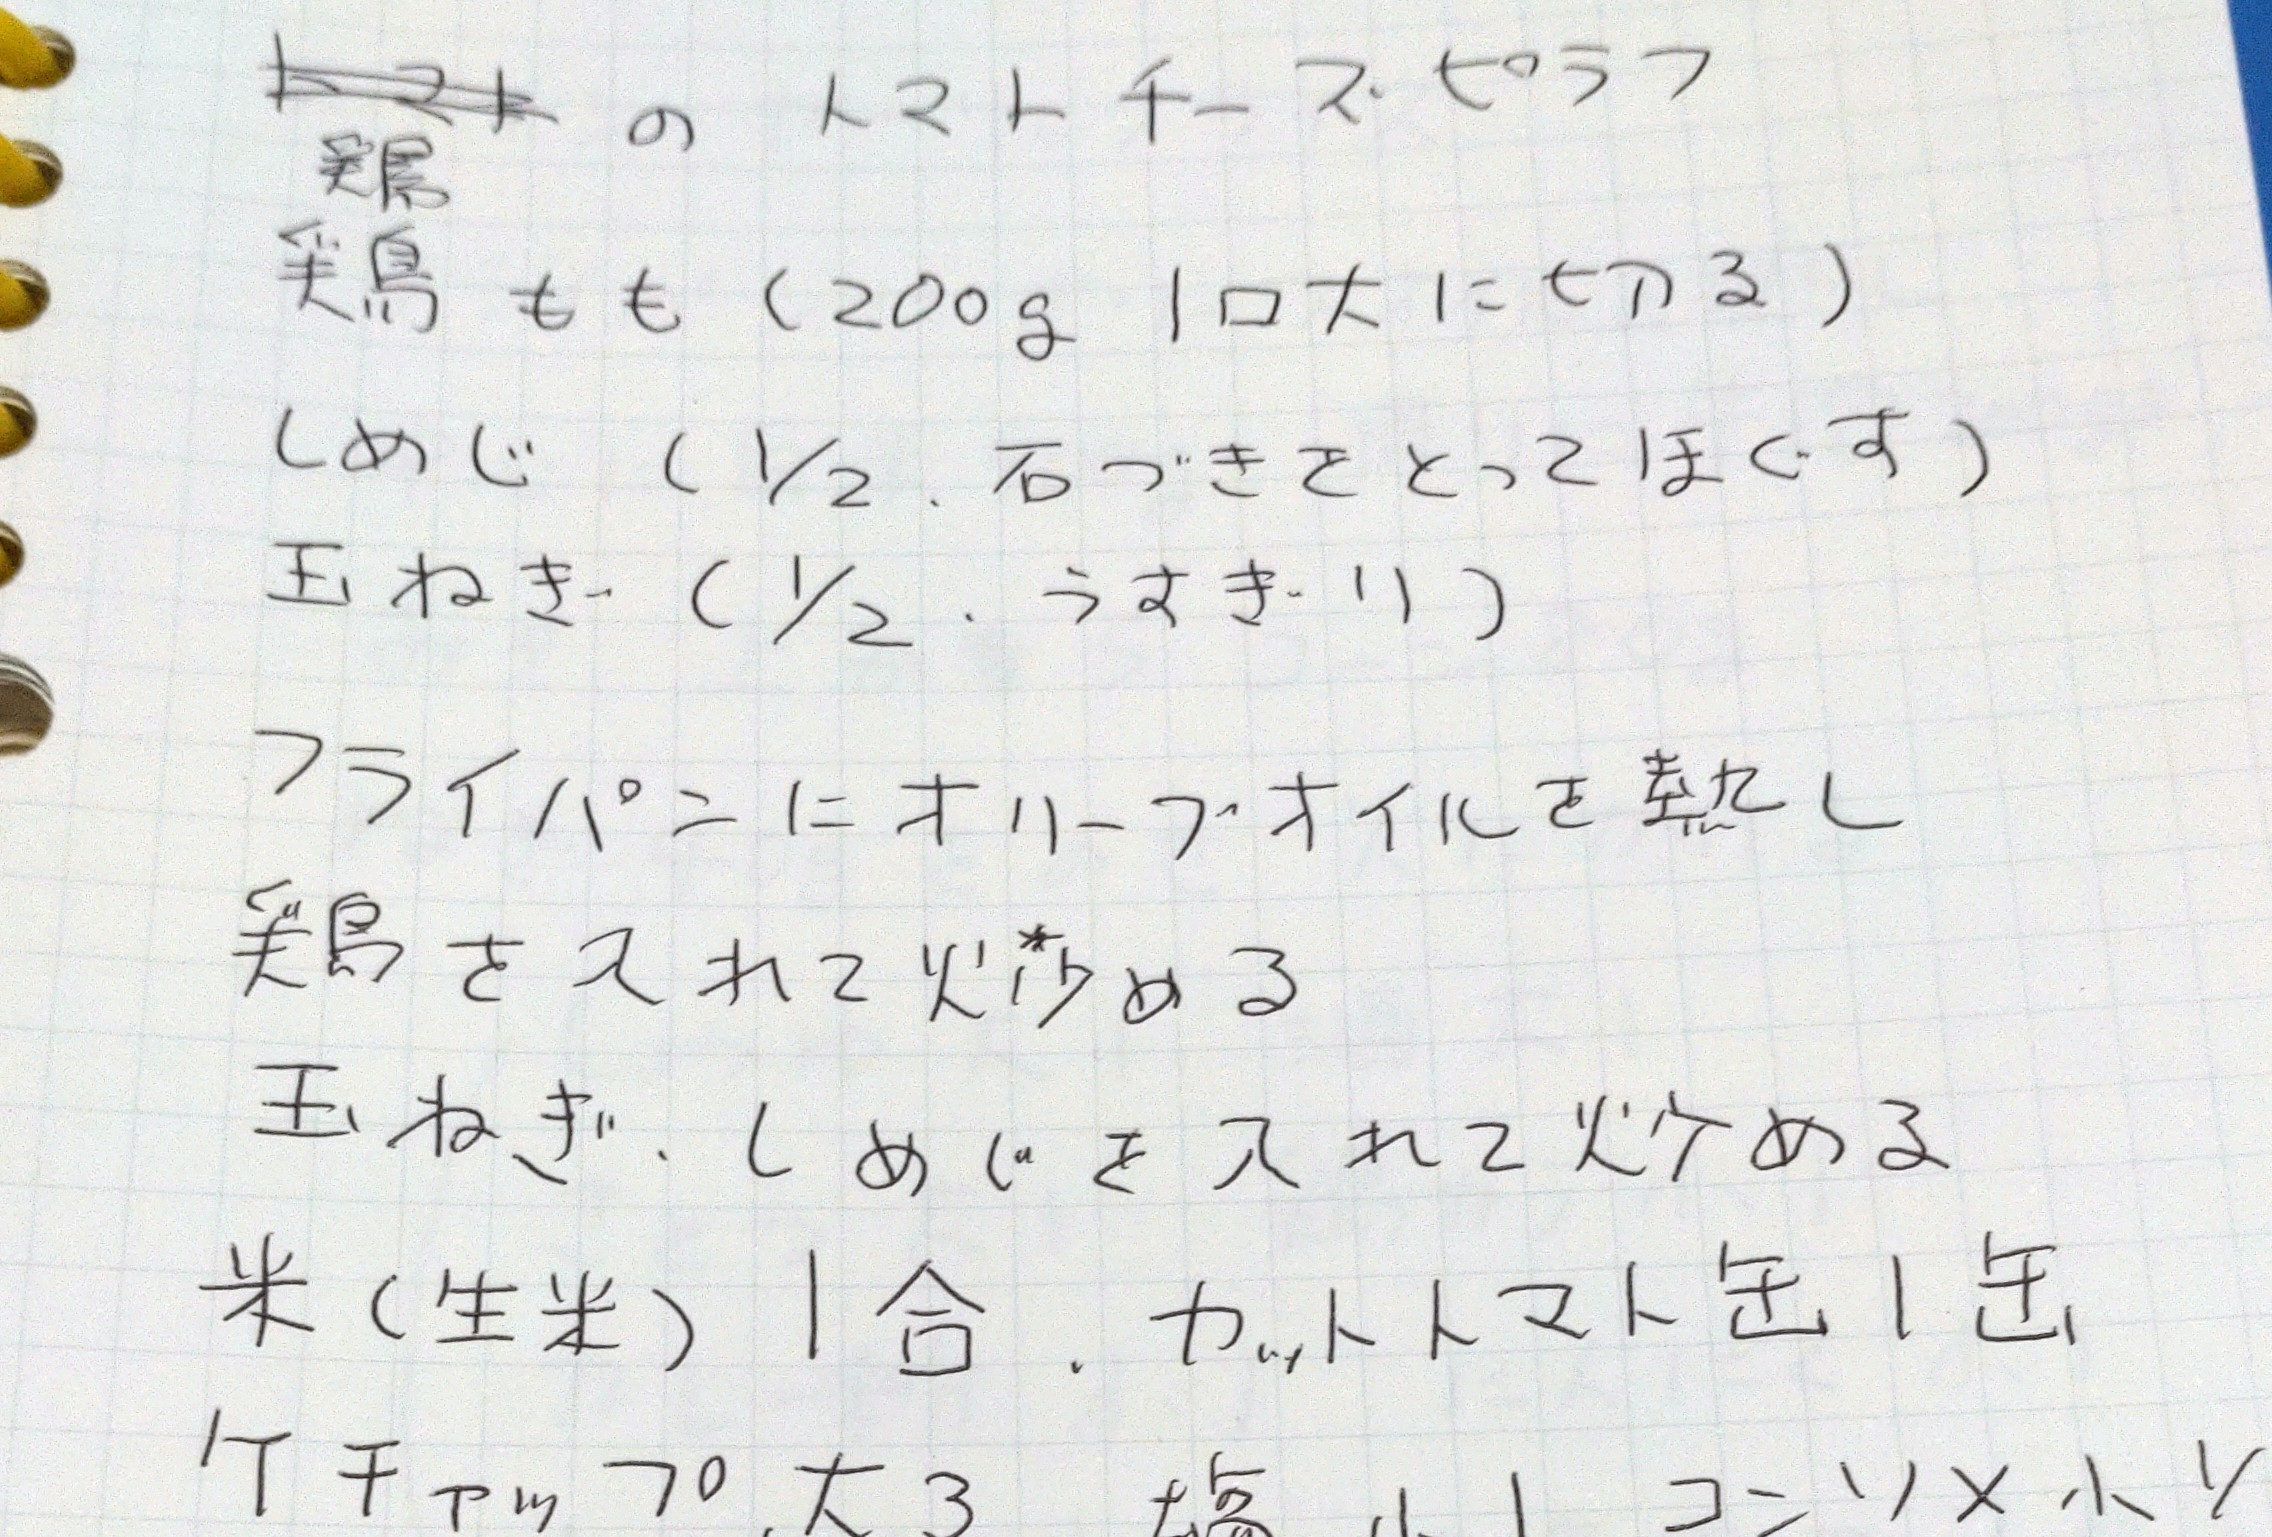 トマトのトマトチーズピラフ
鶏
鶏もも(200g 1口大に切る)
しめじ(1/2.石づきをとってほぐす)
玉ねぎ(1/2.うすぎり)
フライパンにオリーブオイルを熱し
鶏を入れて炒める
玉ねぎ.しめじを入れて炒める
米(生米)1合.カットトマト缶1缶
ケチャップ.大3 塩小1 コンソメ小